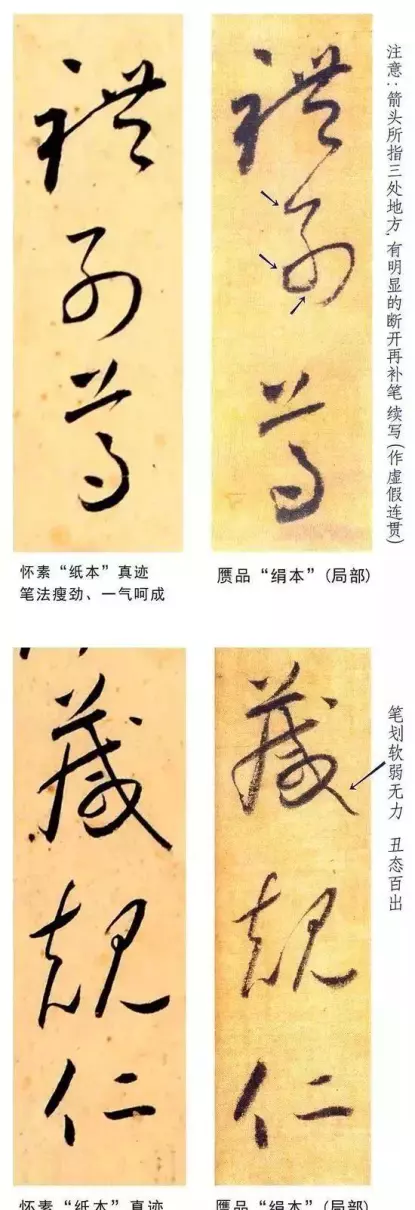 禮别尊
禮别尊
注意：箭头所指三处地方 有明显的断开再补笔 续写(作虚假连贯)
怀素“纸本”真迹
笔法瘦劲、一气呵成
赝品“绢本”(局部)
箴規仁
箴規仁
笔划软弱无力 丑态百出
怀素“纸本”真迹
赝品“绢本”(局部)